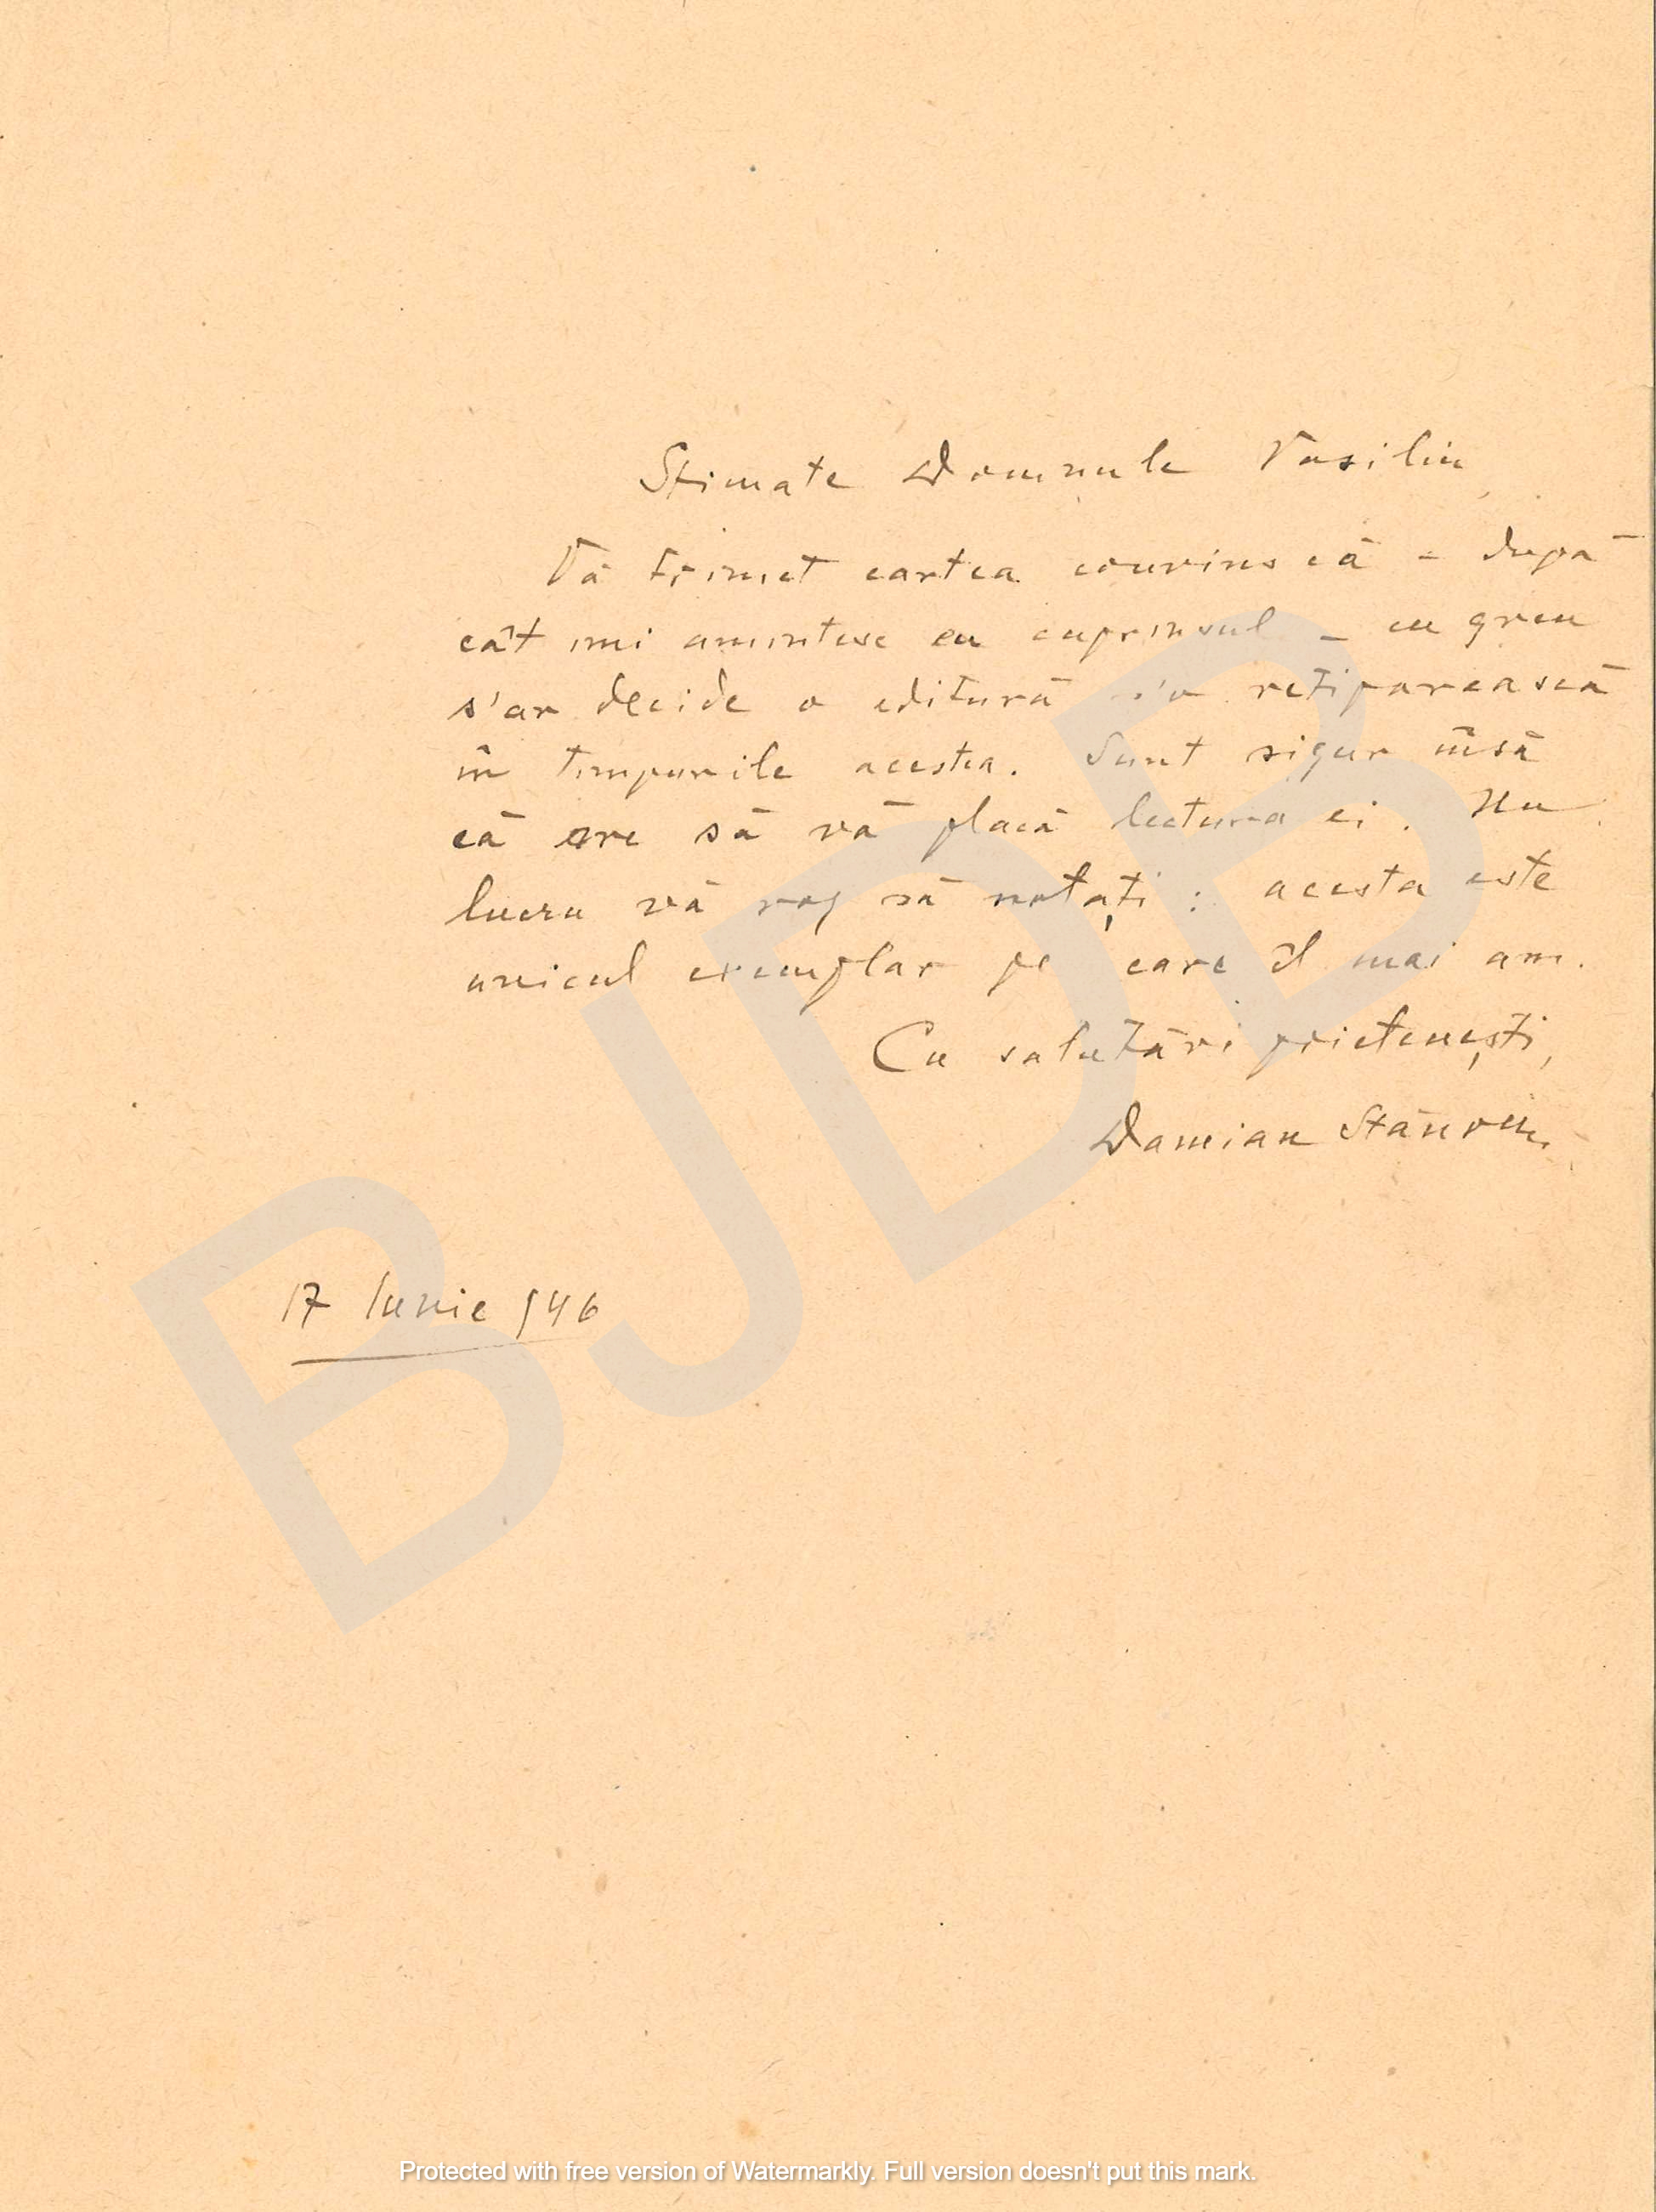 Stimate Domnule Vasiliu,
Vă trimet cartea convins că – după
cât imi amintesc eu cuprinsul – cu greu
s'ar decide o editură s'o retipărească
în timpurile acestea. Sunt sigur însă
că are să vă placă lectura ei. Un
lucru vă rog să notați : acesta este
unicul exemplar pe care îl mai am.
Cu salutări prietenești,
Damian Stănoiu
17 Iunie 946
BJDB
Protected with free version of Watermarkly. Full version doesn't put this mark.